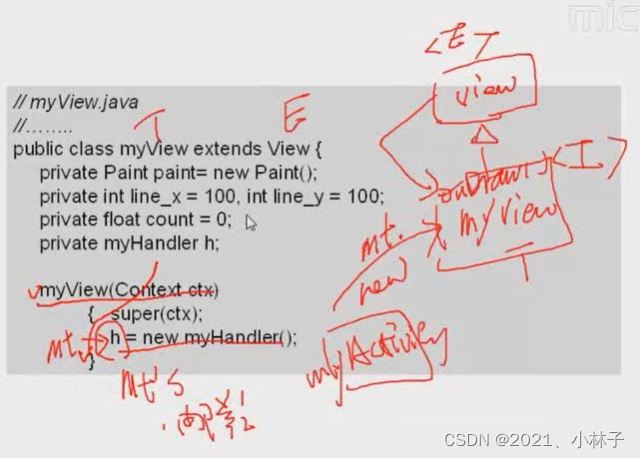 mic
// myView.java
//........
public class myView extends View {
private Paint paint= new Paint();
private int line_x = 100, int line_y = 100;
private float count = 0;
private myHandler h;
myView(Context ctx)
{ super(ctx);
h = new myHandler();
}
T
E
<E>
view
onDraw()
<I>
myView
mt.
new
myActivity
T
mt
mt's
CSDN @2021、小林子